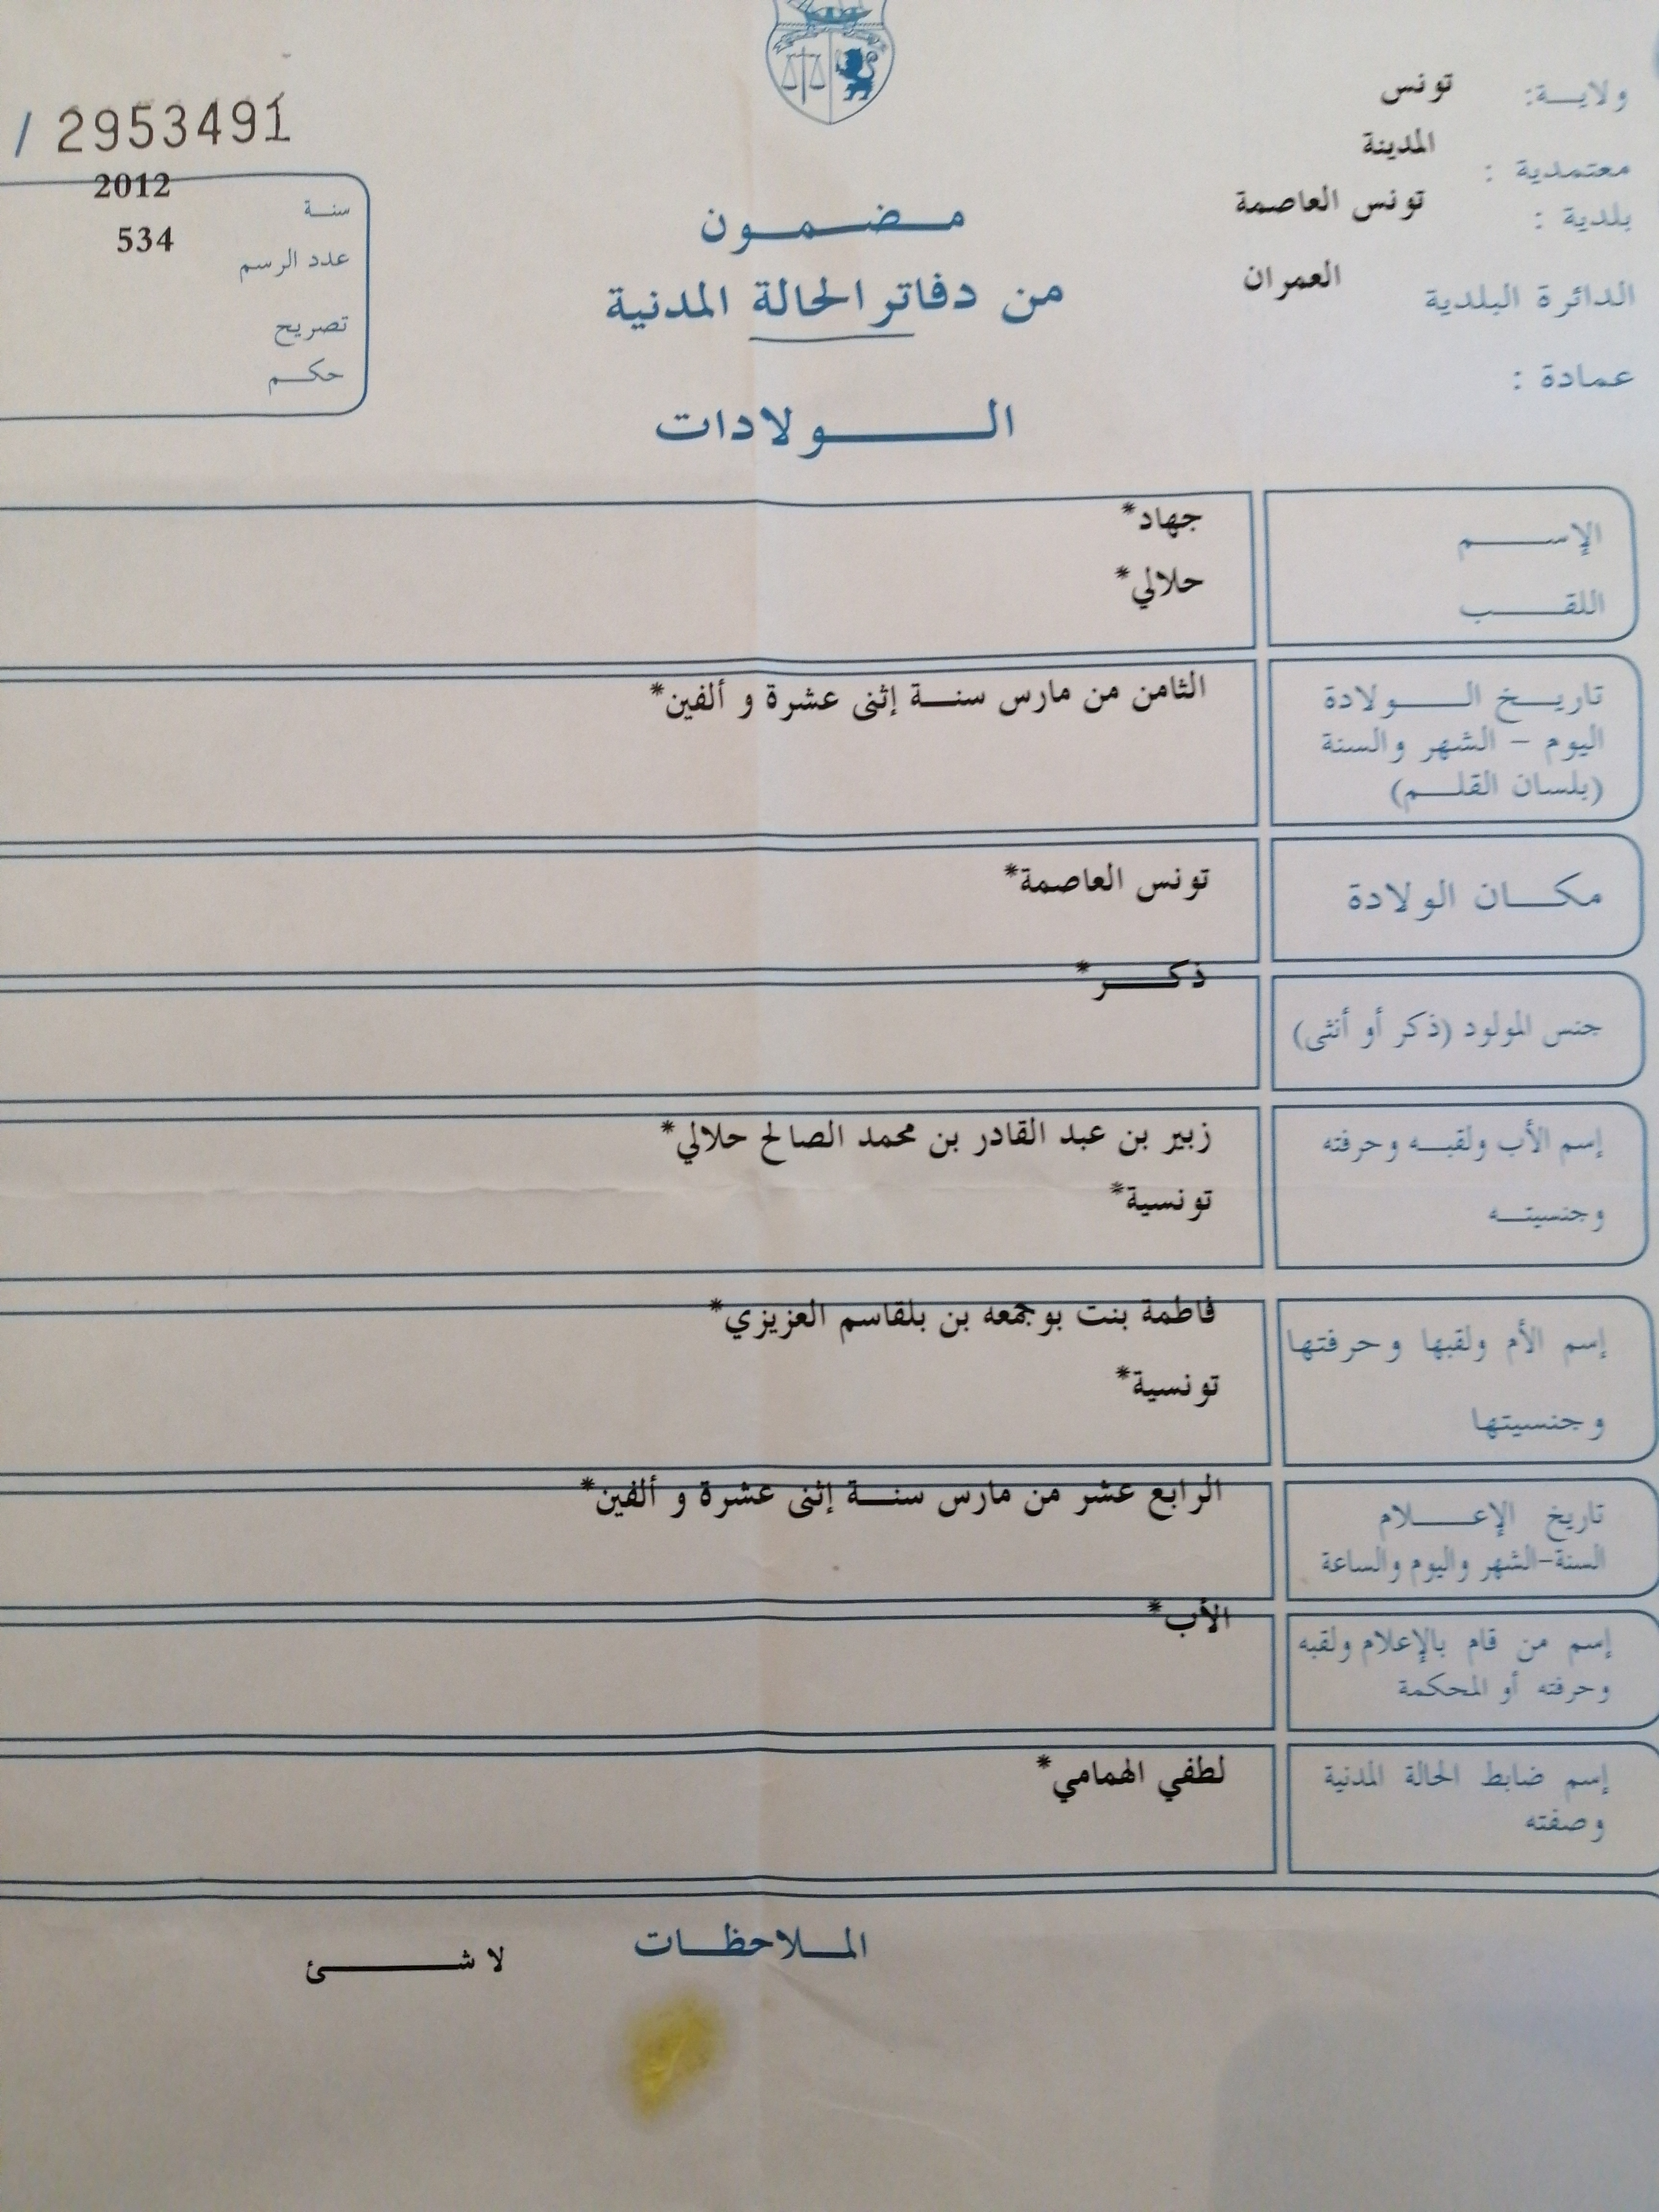 ولاية: تونس
معتمدية : المدينة
بلدية : تونس العاصمة
الدائرة البلدية العمران
عمادة :
/ 2953491
سنة 2012
عدد الرسم 534
تصريح
حكم
مضمون
من دفاتر الحالة المدنية
الولادات
الإسم جهاد*
اللقب حلالي*
تاريخ الولادة الثامن من مارس سنة إثنى عشرة و ألفين*
اليوم - الشهر والسنة
(بلسان القلم)
مكان الولادة تونس العاصمة*
جنس المولود (ذكر أو أنثى) ذكر*
إسم الأب ولقبه وحرفته زبير بن عبد القادر بن محمد الصالح حلالي*
وجنسيته تونسية*
إسم الأم ولقبها وحرفتها فاطمة بنت بوجمعه بن بلقاسم العزيزي*
وجنسيتها تونسية*
تاريخ الإعلام الرابع عشر من مارس سنة إثنى عشرة و ألفين*
السنة-الشهر واليوم والساعة
إسم من قام بالإعلام ولقبه الأب*
وحرفته أو المحكمة
إسم ضابط الحالة المدنية لطفي الهمامي*
وصفته
الملاحظات لا شئ